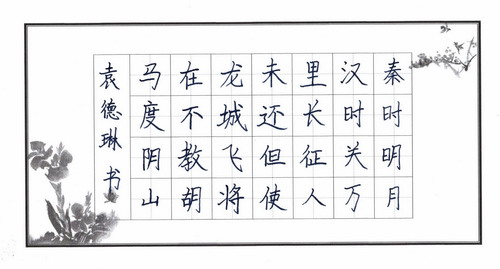 秦时明月
汉时关万
里长征人
未还但使
龙城飞将
在不教胡
马度阴山
袁德琳书